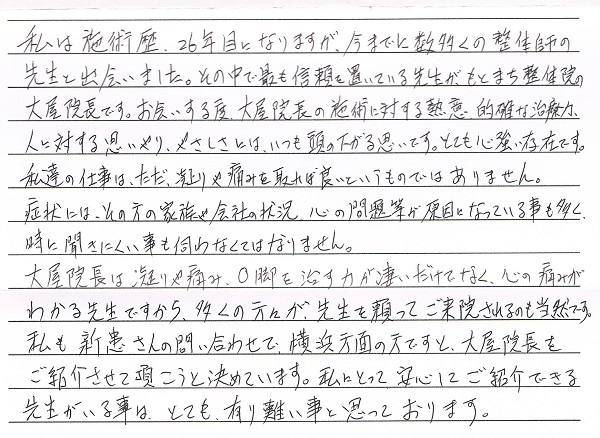 私は施術歴、26年目になりますが、今までに数多くの整体師の
先生と出会いました。その中で最も信頼を置いている先生がもとまち整体院の
大屋院長です。お会いする度、大屋院長の施術に対する熱意、的確な治療力、
人に対する思いやり、やさしさには、いつも頭の下がる思いです。とても心強い存在です。
私達の仕事は、ただ、凝りや痛みを取れば良いというものではありません。
症状には、その方の家族や会社の状況、心の問題等が原因になっている事も多く、
時に聞きにくい事も伺わなくてはなりません。
大屋院長は凝りや痛み、O脚を治す力が凄いだけでなく、心の痛みが
わかる先生ですから、多くの方々が、先生を頼ってご来院されるのも当然です。
私も新患さんの問い合わせで、横浜方面の方ですと、大屋院長を
ご紹介させて頂こうと決めています。私にとって、安心してご紹介できる
先生がいる事は、とても、有り難い事と思っております。